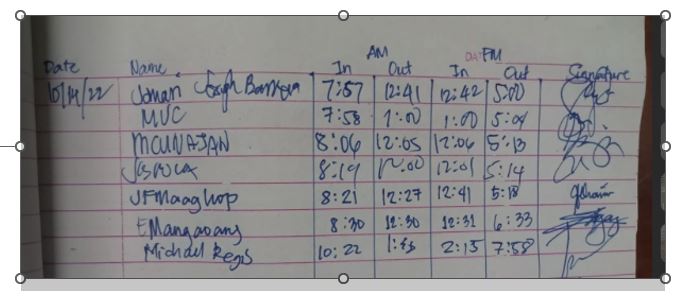 AM PM
Date Name In Out In Out Signature
10/14/22 Joman 7:57 12:41 12:42 5:00
MVC 7:58 1:00 1:00 5:04
8:06 12:05 12:06 5:13
8:19 12:00 12:01 5:14
JFMaaghop 8:21 12:27 12:41 5:18
EMangaoang 8:30 12:30 12:31 6:33
Michael Regis 10:22 2:15 7:58